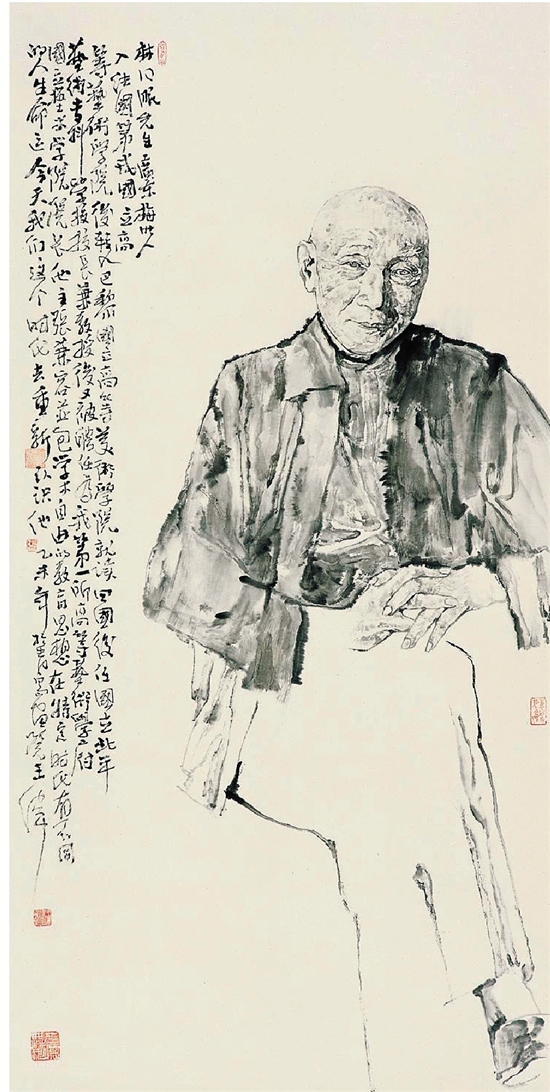 林风眠先生廣東梅州人
入法國第戎國立高
等藝術學院後轉入巴黎國立高等美術學院就读回國後任國立北平
藝術专科学校校长兼教授後又被聘任為我第一所高等藝術學府
國立藝术学院院长他主張兼容並包学术自由的教育思想在特定时代有了不同
的人生命运今天我们这个时代去重新认识他乙未年